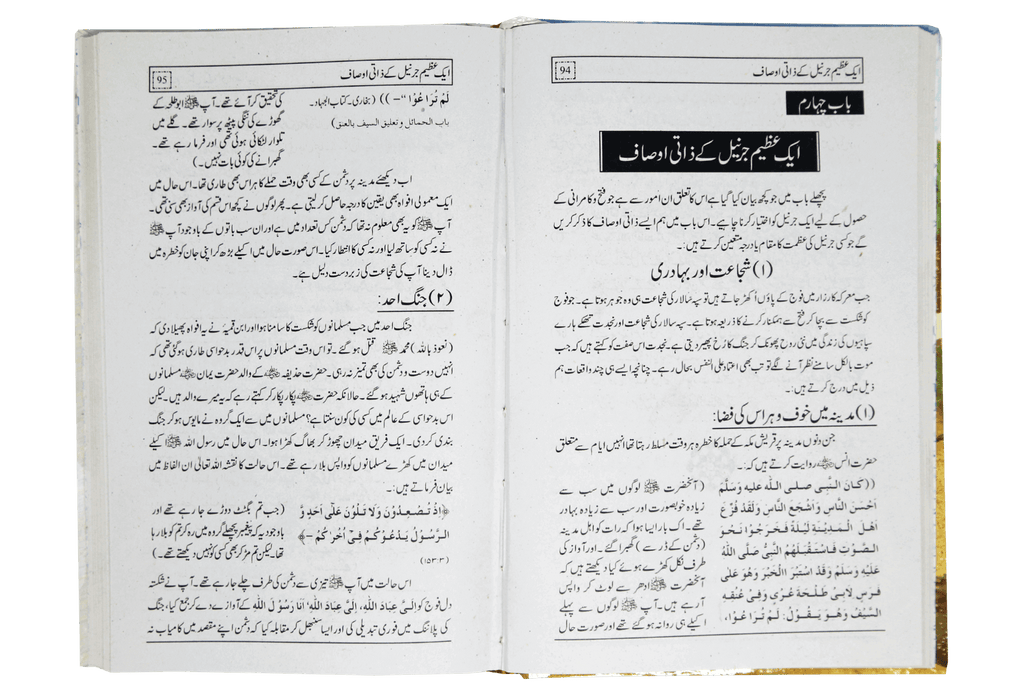 ایک عظیم جرنیل کے ذاتی اوصاف
94
باب چہارم
ایک عظیم جرنیل کے ذاتی اوصاف
پچھلے باب میں جو کچھ بیان کیا گیا ہے اس کا تعلق ان امور سے ہے جو فتح و کامرانی کے
حصول کے لیے ایک جرنیل کو اختیار کرنا چاہیے۔ اس باب میں ہم ایسے ذاتی اوصاف کا ذکر کریں
گے جو کسی جرنیل کی عظمت کا مقام یا درجہ متعین کرتے ہیں:۔
(۱) شجاعت اور بہادری
جب معرکہ کارزار میں فوج کے پاؤں اُکھڑ جاتے ہیں تو سپہ سالار کی شجاعت ہی وہ جوہر ہوتا ہے۔ جو فوج
کو شکست سے بچا کر فتح سے ہمکنار کرنے کا ذریعہ ہوتا ہے۔ سپہ سالار کی شجاعت اور نجدت تھکے ہارے
سپاہیوں کی زندگی میں نئی روح پھونک کر جنگ کا رُخ پھیر دیتی ہے۔ نجدت اس صفت کو کہتے ہیں کہ جب
موت بالکل سامنے نظر آنے لگے تو تب بھی اعتماد علی النفس بحال رہے۔ چنانچہ ایسے ہی چند واقعات ہم
ذیل میں درج کرتے ہیں:۔
(۱) مدینہ میں خوف و ہراس کی فضا:
جن دنوں مدینہ پر قریش مکہ کے حملہ کا خطرہ ہر وقت مسلط رہتا تھا انہیں ایام سے متعلق
حضرت انس ؓ روایت کرتے ہیں کہ:۔
((كَانَ النَّبِى صلى الله عليه وَسَلَّمَ
اَحْسَنَ النَّاسِ وَاَشْجَعَ النَّاسِ وَلَقَدْ فُزِّعَ
اَهْلُ الْمَدِيْنَةِ لَيْلَةً فَخَرَجُوْا نَحْوَ
الصَّوْتِ فَاسْتَقْبَلَهُمُ النَّبِىُّ صَلَّى اللهُ
عَلَيْهِ وَسَلَّمَ وَقَدِ اسْتَبْرَا الْخَبَرَ وَهُوَ عَلٰى
فَرَسٍ لِاَبِىْ طَلْحَةَ عُرْىٍ وَفِىْ عُنُقِهِ
السَّيْفُ وَهُوَ يَقُوْلُ: لَمْ تُرَاعُوْا،
(آنحضرت ﷺ لوگوں میں سب سے
زیادہ خوبصورت اور سب سے زیادہ بہادر
تھے۔ اک بار ایسا ہوا کہ رات اہل مدینہ
(دشمن کے ڈر سے) گھبرا گئے۔ اور آواز کی
طرف نکل کھڑے ہوئے کیا دیکھتے ہیں کہ
آنحضرت ﷺ ادھر سے لوٹ کر واپس
آ رہے ہیں۔ آپ ﷺ لوگوں سے پہلے
اکیلے ہی روانہ ہو گئے تھے اور صورت حال
ایک عظیم جرنیل کے ذاتی اوصاف
95
لَمْ تُرَاعُوْا“-)) (بخاری۔ کتاب الجہاد۔
باب الحمائل و تعليق السيف بالعنق)
کی تحقیق کر آئے تھے۔ آپ ﷺ ابو طلحہ کے
گھوڑے کی ننگی پیٹھ پر سوار تھے۔ گلے میں
تلوار لٹکائی ہوئی تھی اور فرما رہے تھے۔
گھبرانے کی کوئی بات نہیں۔)
اب دیکھئے مدینہ پر دشمن کے کسی بھی وقت حملے کا ہراس بھی طاری تھا۔ اس حال میں
ایک معمولی افواہ بھی یقین کا درجہ حاصل کر لیتی ہے۔ پھر لوگوں نے کچھ اس قسم کی آواز بھی سنی تھی۔
آپ ﷺ کو یہ بھی معلوم نہ تھا کہ دشمن کس تعداد میں ہے اور ان سب باتوں کے باوجود آپ ﷺ
نے نہ کسی کو ساتھ لیا اور نہ کسی کا انتظار کیا۔ اس صورت حال میں اکیلے بڑھ کر اپنی جان کو خطرہ میں
ڈال دینا آپ کی شجاعت کی زبردست دلیل ہے۔
(۲) جنگ احد:
جنگ احد میں جب مسلمانوں کو شکست کا سامنا ہوا اور ابن قمیۂ نے یہ افواہ پھیلا دی کہ
(نعوذ باللہ) محمد ﷺ قتل ہو گئے۔ تو اس وقت مسلمانوں پر اس قدر بدحواسی طاری ہو گئی تھی کہ
انہیں دوست و دشمن کی بھی تمیز نہ رہی۔ حضرت حذیفہ ؓ کے والد حضرت یمان ؓ مسلمانوں
کے ہی ہاتھوں شہید ہو گئے۔ حالانکہ حضرت ؓ پکار پکار کر کہتے رہے کہ یہ میرے والد ہیں۔ لیکن
اس بدحواسی کے عالم میں کسی کی کون سنتا ہے؟ مسلمانوں میں سے ایک گروہ نے مایوس ہو کر جنگ
بندی کر دی۔ ایک فریق میدان چھوڑ کر بھاگ کھڑا ہوا۔ اس حال میں رسول اللہ ﷺ اکیلے
میدان میں کھڑے مسلمانوں کو واپس بلا رہے تھے۔ اس حالت کا نقشہ اللہ تعالیٰ ان الفاظ میں
بیان فرماتے ہیں:۔
﴿اِذْ تُصْعِدُوْنَ وَلَا تَلْوٗنَ عَلٰٓى اَحَدٍ وَّ
الرَّسُوْلُ يَدْعُوْكُمْ فِىْٓ اُخْرٰىكُمْ -﴾
(۱۵۳:۳)
(جب تم بگٹٹ دوڑے جا رہے تھے اور
باوجود یکہ پیغمبر پچھلے گروہ میں رہ کر تم کو بلا رہا
تھا۔ لیکن تم مڑ کر بھی کسی کو نہیں دیکھتے تھے۔)
اس حالت میں آپ ﷺ تیزی سے دشمن کی طرف چلے جا رہے تھے۔ آپ نے شکستہ
دل فوج کو اِلَىَّ عِبَادَ اللهِ، اِلَىَّ عِبَادَ اللهِ اَنَا رَسُوْلُ اللهِ کے آوازے دے کر جمع کیا، جنگ
کی پلاننگ میں فوری تبدیلی کی اور ایسا سنبھل کر مقابلہ کیا کہ دشمن اپنے مقصد میں کامیاب نہ